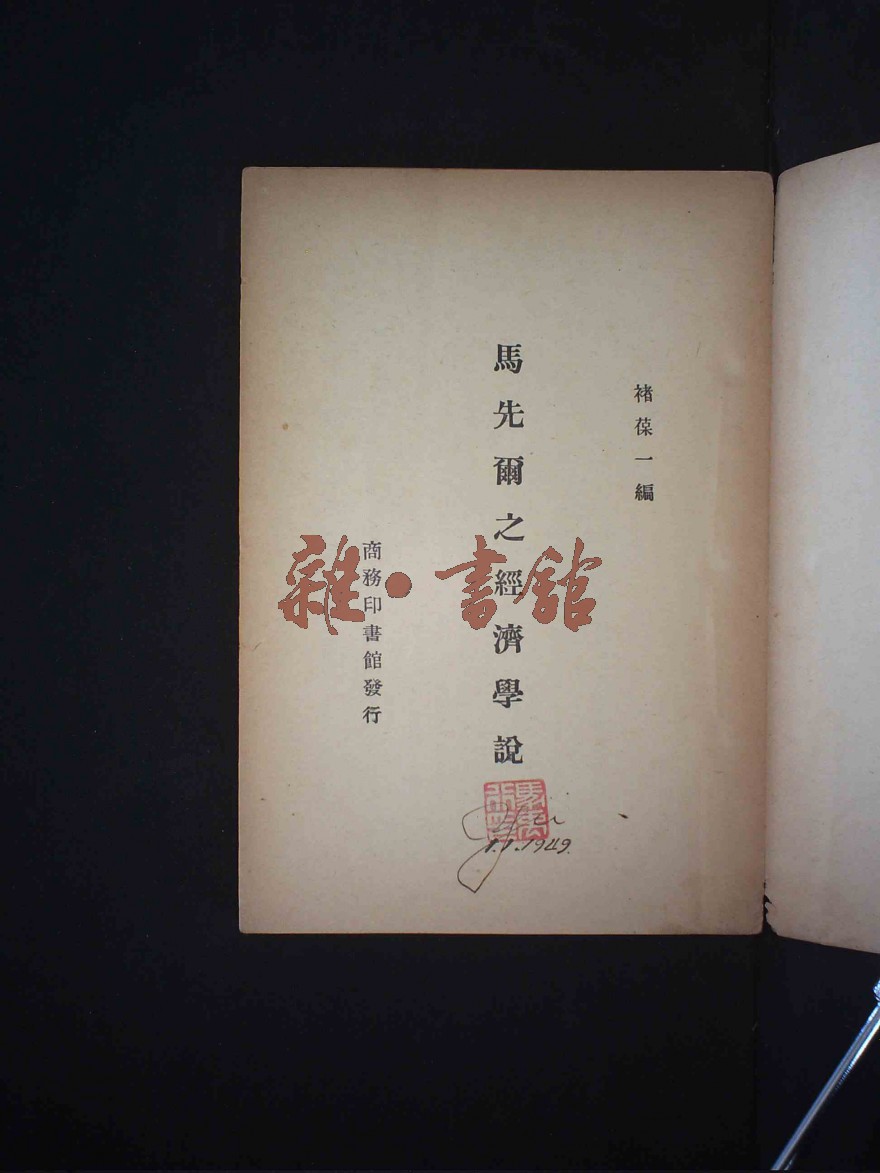 褚葆一編
馬先爾之經濟學說
商務印書館發行
雜·書館
1.1.1949.